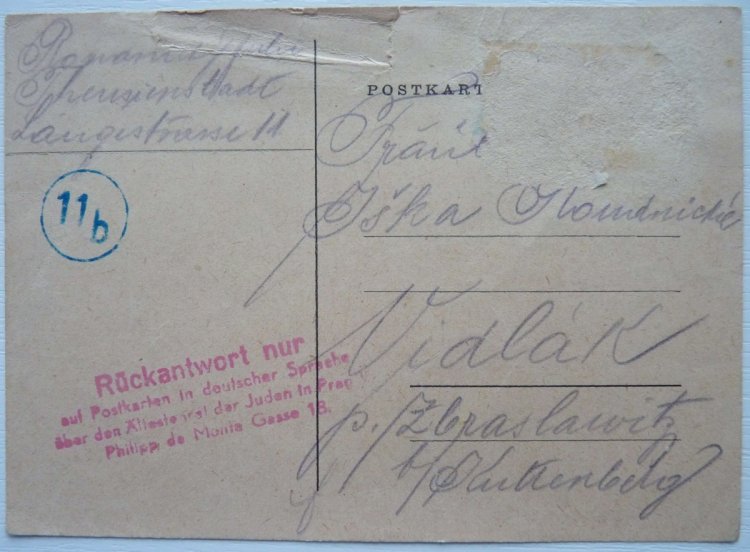 Theresienstadt
Langestrasse 11
POSTKART
Iška
Vidlák
p. Zbraslawitz
b/Kuttenberg
11b
Rückantwort nur
auf Postkarten in deutscher Sprache
über den Ältestenrat der Juden in Prag
Philipp de Monte Gasse 18.